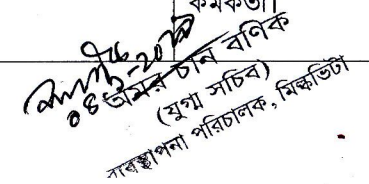 কর্মকর্তা।
অমর চান বণিক
(যুগ্ম সচিব)
ব্যবস্থাপনা পরিচালক, মিল্কভিটা